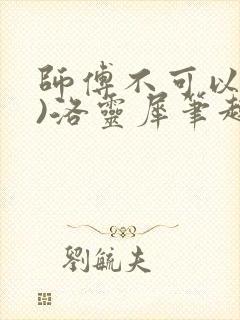 師傅不可以
)洛靈犀筆趣
劉毓夫